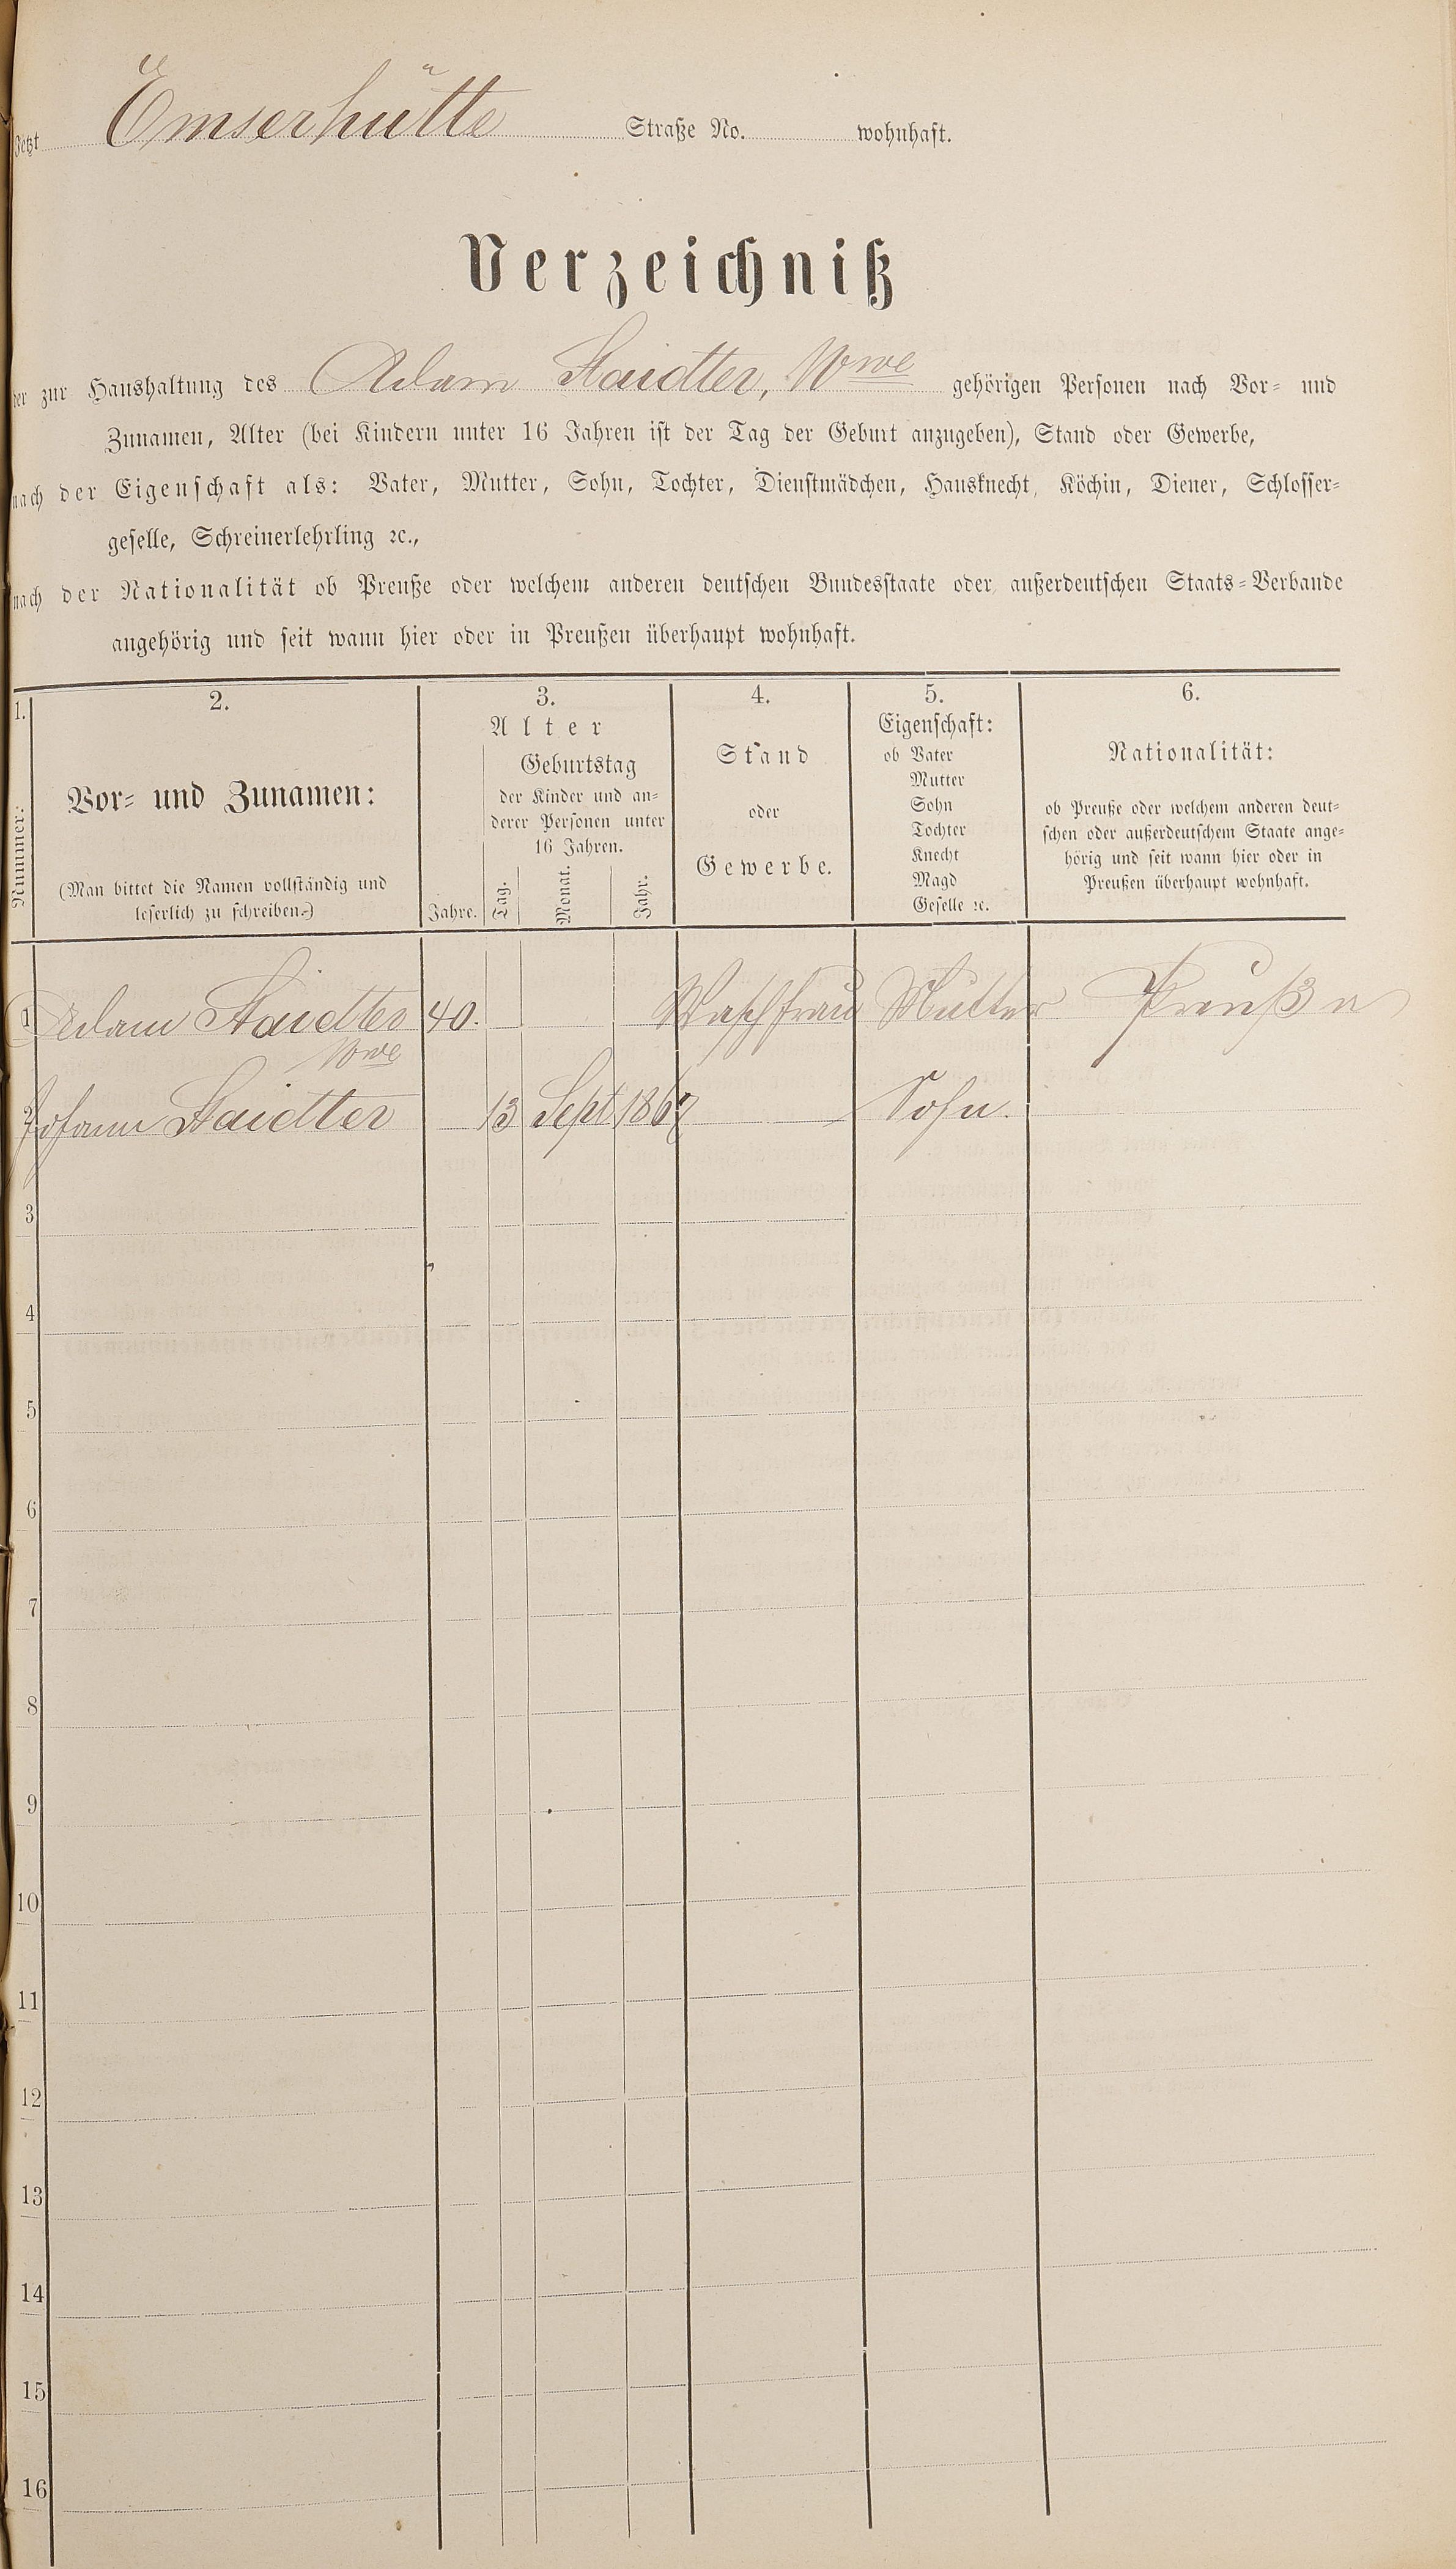 Jetzt Emserhütte Straße No. wohnhaft.
Verzeichniß
der zur Haushaltung des Adam Staidter, Wwe gehörigen Personen nach Vor- und
Zunamen, Alter (bei Kindern unter 16 Jahren ist der Tag der Geburt anzugeben), Stand oder Gewerbe,
nach der Eigenschaft als: Vater, Mutter, Sohn, Tochter, Dienstmädchen, Hausknecht, Köchin, Diener, Schlosser-
geselle, Schreinerlehrling ꝛc.,
nach der Nationalität ob Preuße oder welchem anderen deutschen Bundesstaate oder außerdeutschen Staats-Verbande
angehörig und seit wann hier oder in Preußen überhaupt wohnhaft.
1. 2. 3. 4. 5. 6.
Nummer.
Vor- und Zunamen:
(Man bittet die Namen vollständig und
leserlich zu schreiben.)
Alter
Jahre.
Geburtstag
der Kinder und an-
derer Personen unter
16 Jahren.
Tag. Monat. Jahr.
Stand
oder
Gewerbe.
Eigenschaft:
ob Vater
Mutter
Sohn
Tochter
Knecht
Magd
Geselle ꝛc.
Nationalität:
ob Preuße oder welchem anderen deut-
schen oder außerdeutschem Staate ange-
hörig und seit wann hier oder in
Preußen überhaupt wohnhaft.
1 Adam Staidter 40. Waschfrau Mutter Preuße
Wwe
2 Johann Staidter 13 Sept 1867 Sohn.
3
4
5
6
7
8
9
10
11
12
13
14
15
16